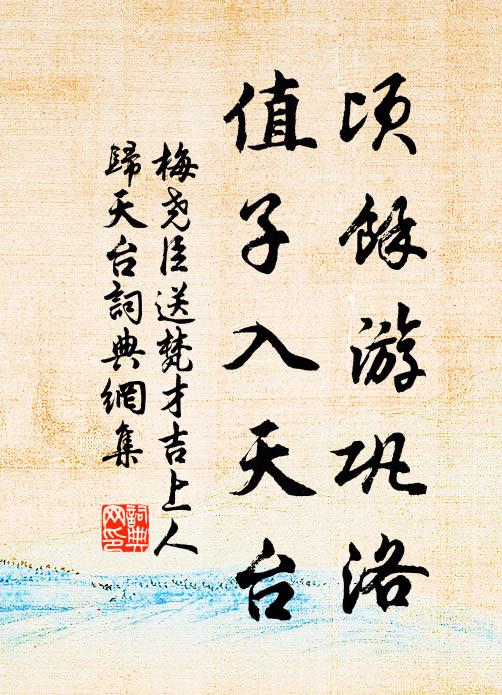 頃餘游巩洛
值子入天台
梅尧臣送梵才吉上人
歸天台詞典網集
詞典
网印